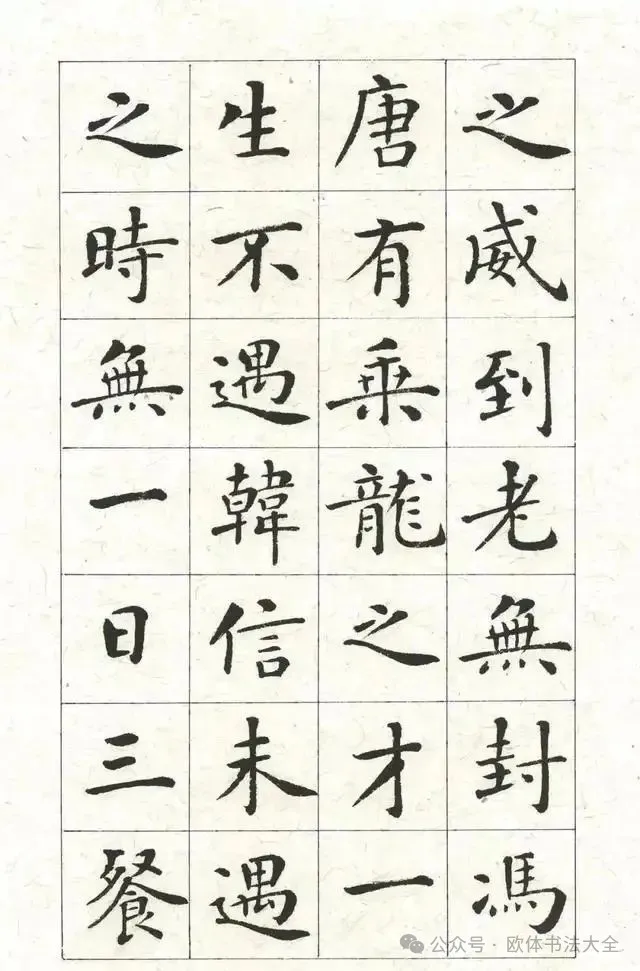 之威到老無封馮
唐有乗龍之才一
生不遇韓信未遇
之時無一日三餐
公众号·欧体书法大全